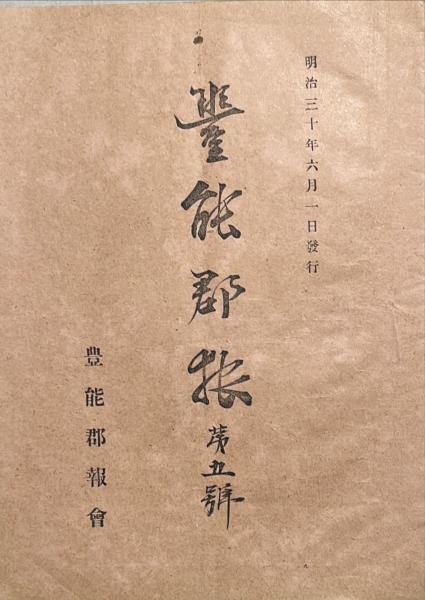 明治三十年六月一日發行
豐能郡報 第五號
豊能郡報會